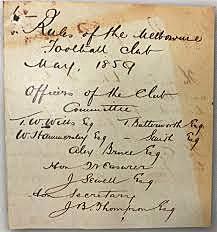 Rules of the Melbourne
Football Club
May, 1859
Officers of the Club
Committee
T. W. Wills Esq T. Butterworth Esq
W. Hammersley Esq Smith Esq
Alex Bruce Esq
Hon Treasurer
J Sewell Esq
Hon Secretary
J. B. Thompson Esq